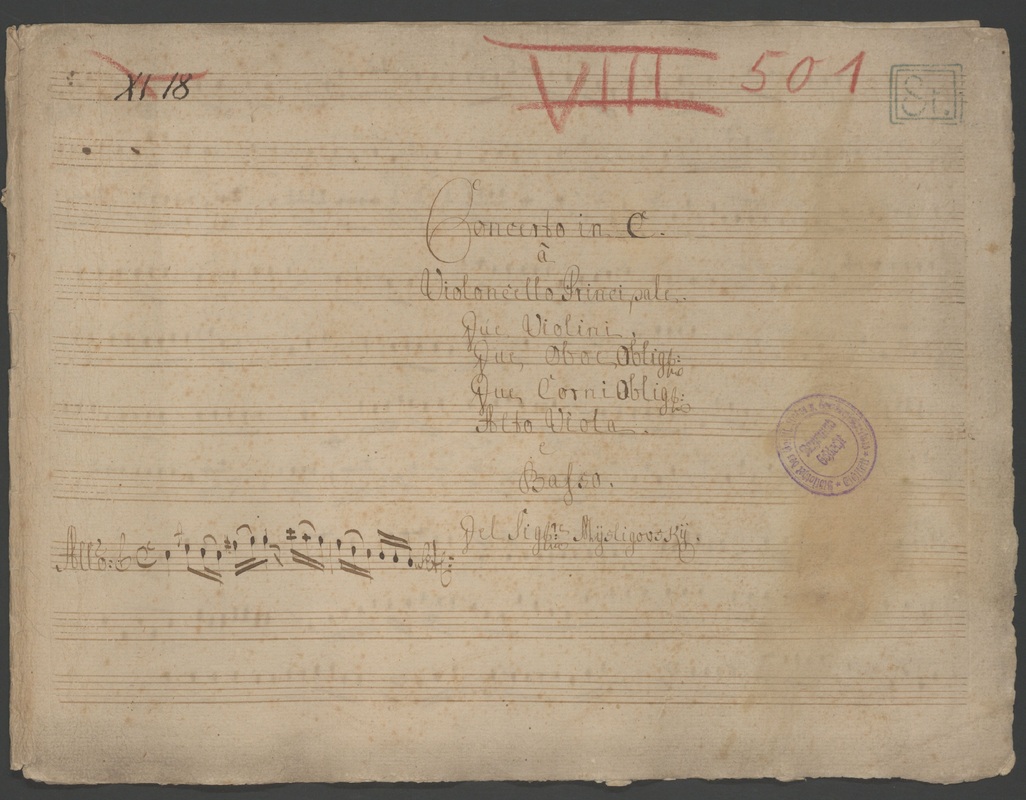 XI. 18
VIII 501
St.
Concerto in C.
à
Violoncello Principale.
Due Violini.
Due Oboe Oblig:
Due Corni Oblig:
Alto Viola.
e
Basso.
Del Sig:re Mysligovsky.
All:o